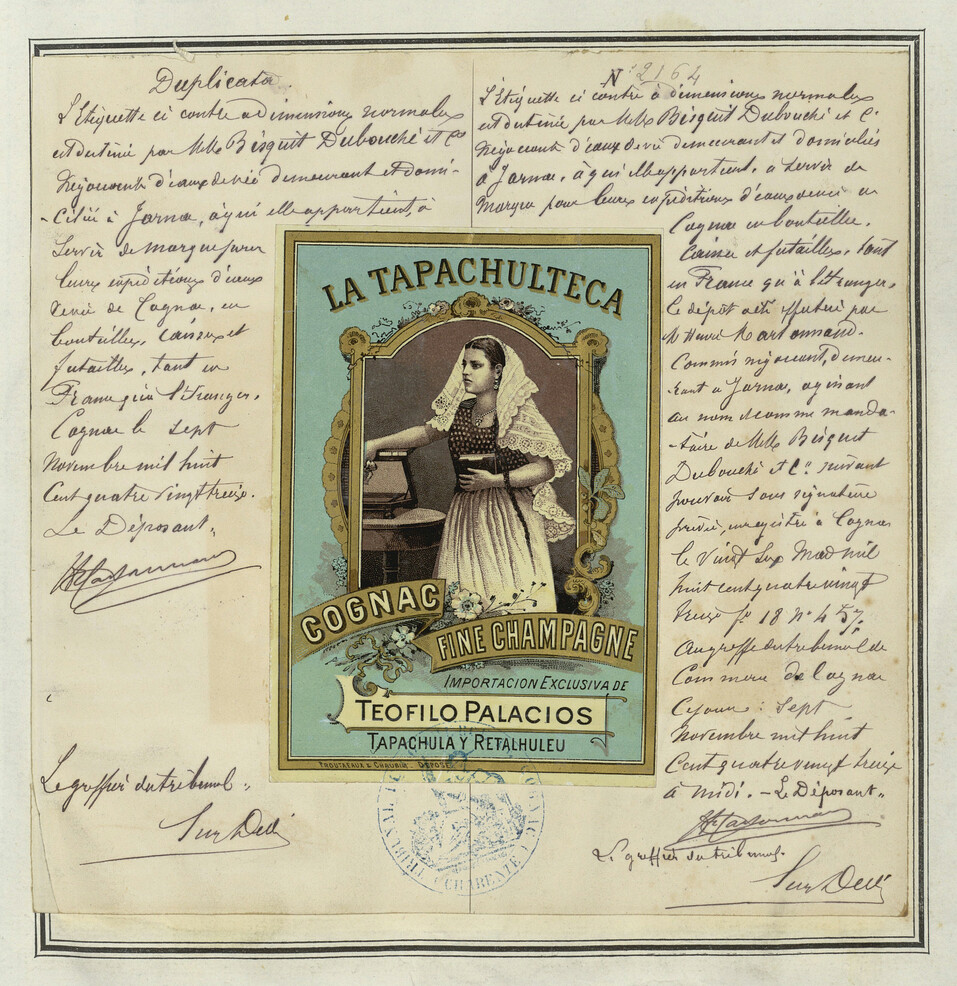 Duplicata
L'Etiquette ci contre a dimensions normales
est destinée par MMrs Bisquit Dubouché et Co
Négociants d'eaux de vie demeurant et domi-
-ciliés à Jarnac, à qui elle appartient, à
servir de marque pour
leurs expéditions d'eaux
de vie de Cognac, en
bouteilles, caisses et
futailles, tant en
France qu'à l'étranger.
Cognac le sept
novembre mil huit
cent quatre vingt treize.
Le Déposant,
Le greffier du tribunal,
N° 2164
L'Etiquette ci contre à dimensions normales
est destinée par MMrs Bisquit Dubouché et C.
Négociants d'eaux de vie demeurant et domiciliés
à Jarnac, à qui elle appartient, à servir de
marque pour leurs expéditions d'eaux de vie de
Cognac en bouteilles,
caisses et futailles, tant
en France qu'à l'étranger,
le dépôt a été effectué par
M Henri
Commis négociant, demeu-
-rant à Jarnac, agissant
au nom et comme manda-
-taire de MMrs Bisquit
Dubouché et Cie suivant
pouvoir sous signature
privée, enregistré à Cognac
le vingt six Mai mil
huit cent quatre vingt
treize fo 18 no 4
Au greffe du tribunal de
Commerce de Cognac
Ce jour : sept
novembre mil huit
cent quatre vingt treize
à midi. - Le Déposant,
Le greffier du tribunal.
LA TAPACHULTECA
COGNAC
FINE CHAMPAGNE
IMPORTACION EXCLUSIVA DE
TEOFILO PALACIOS
TAPACHULA Y RETALHULEU
DÉPOSÉ
TRIBUNAL DE COMMERCE DE COGNAC (CHARENTE)